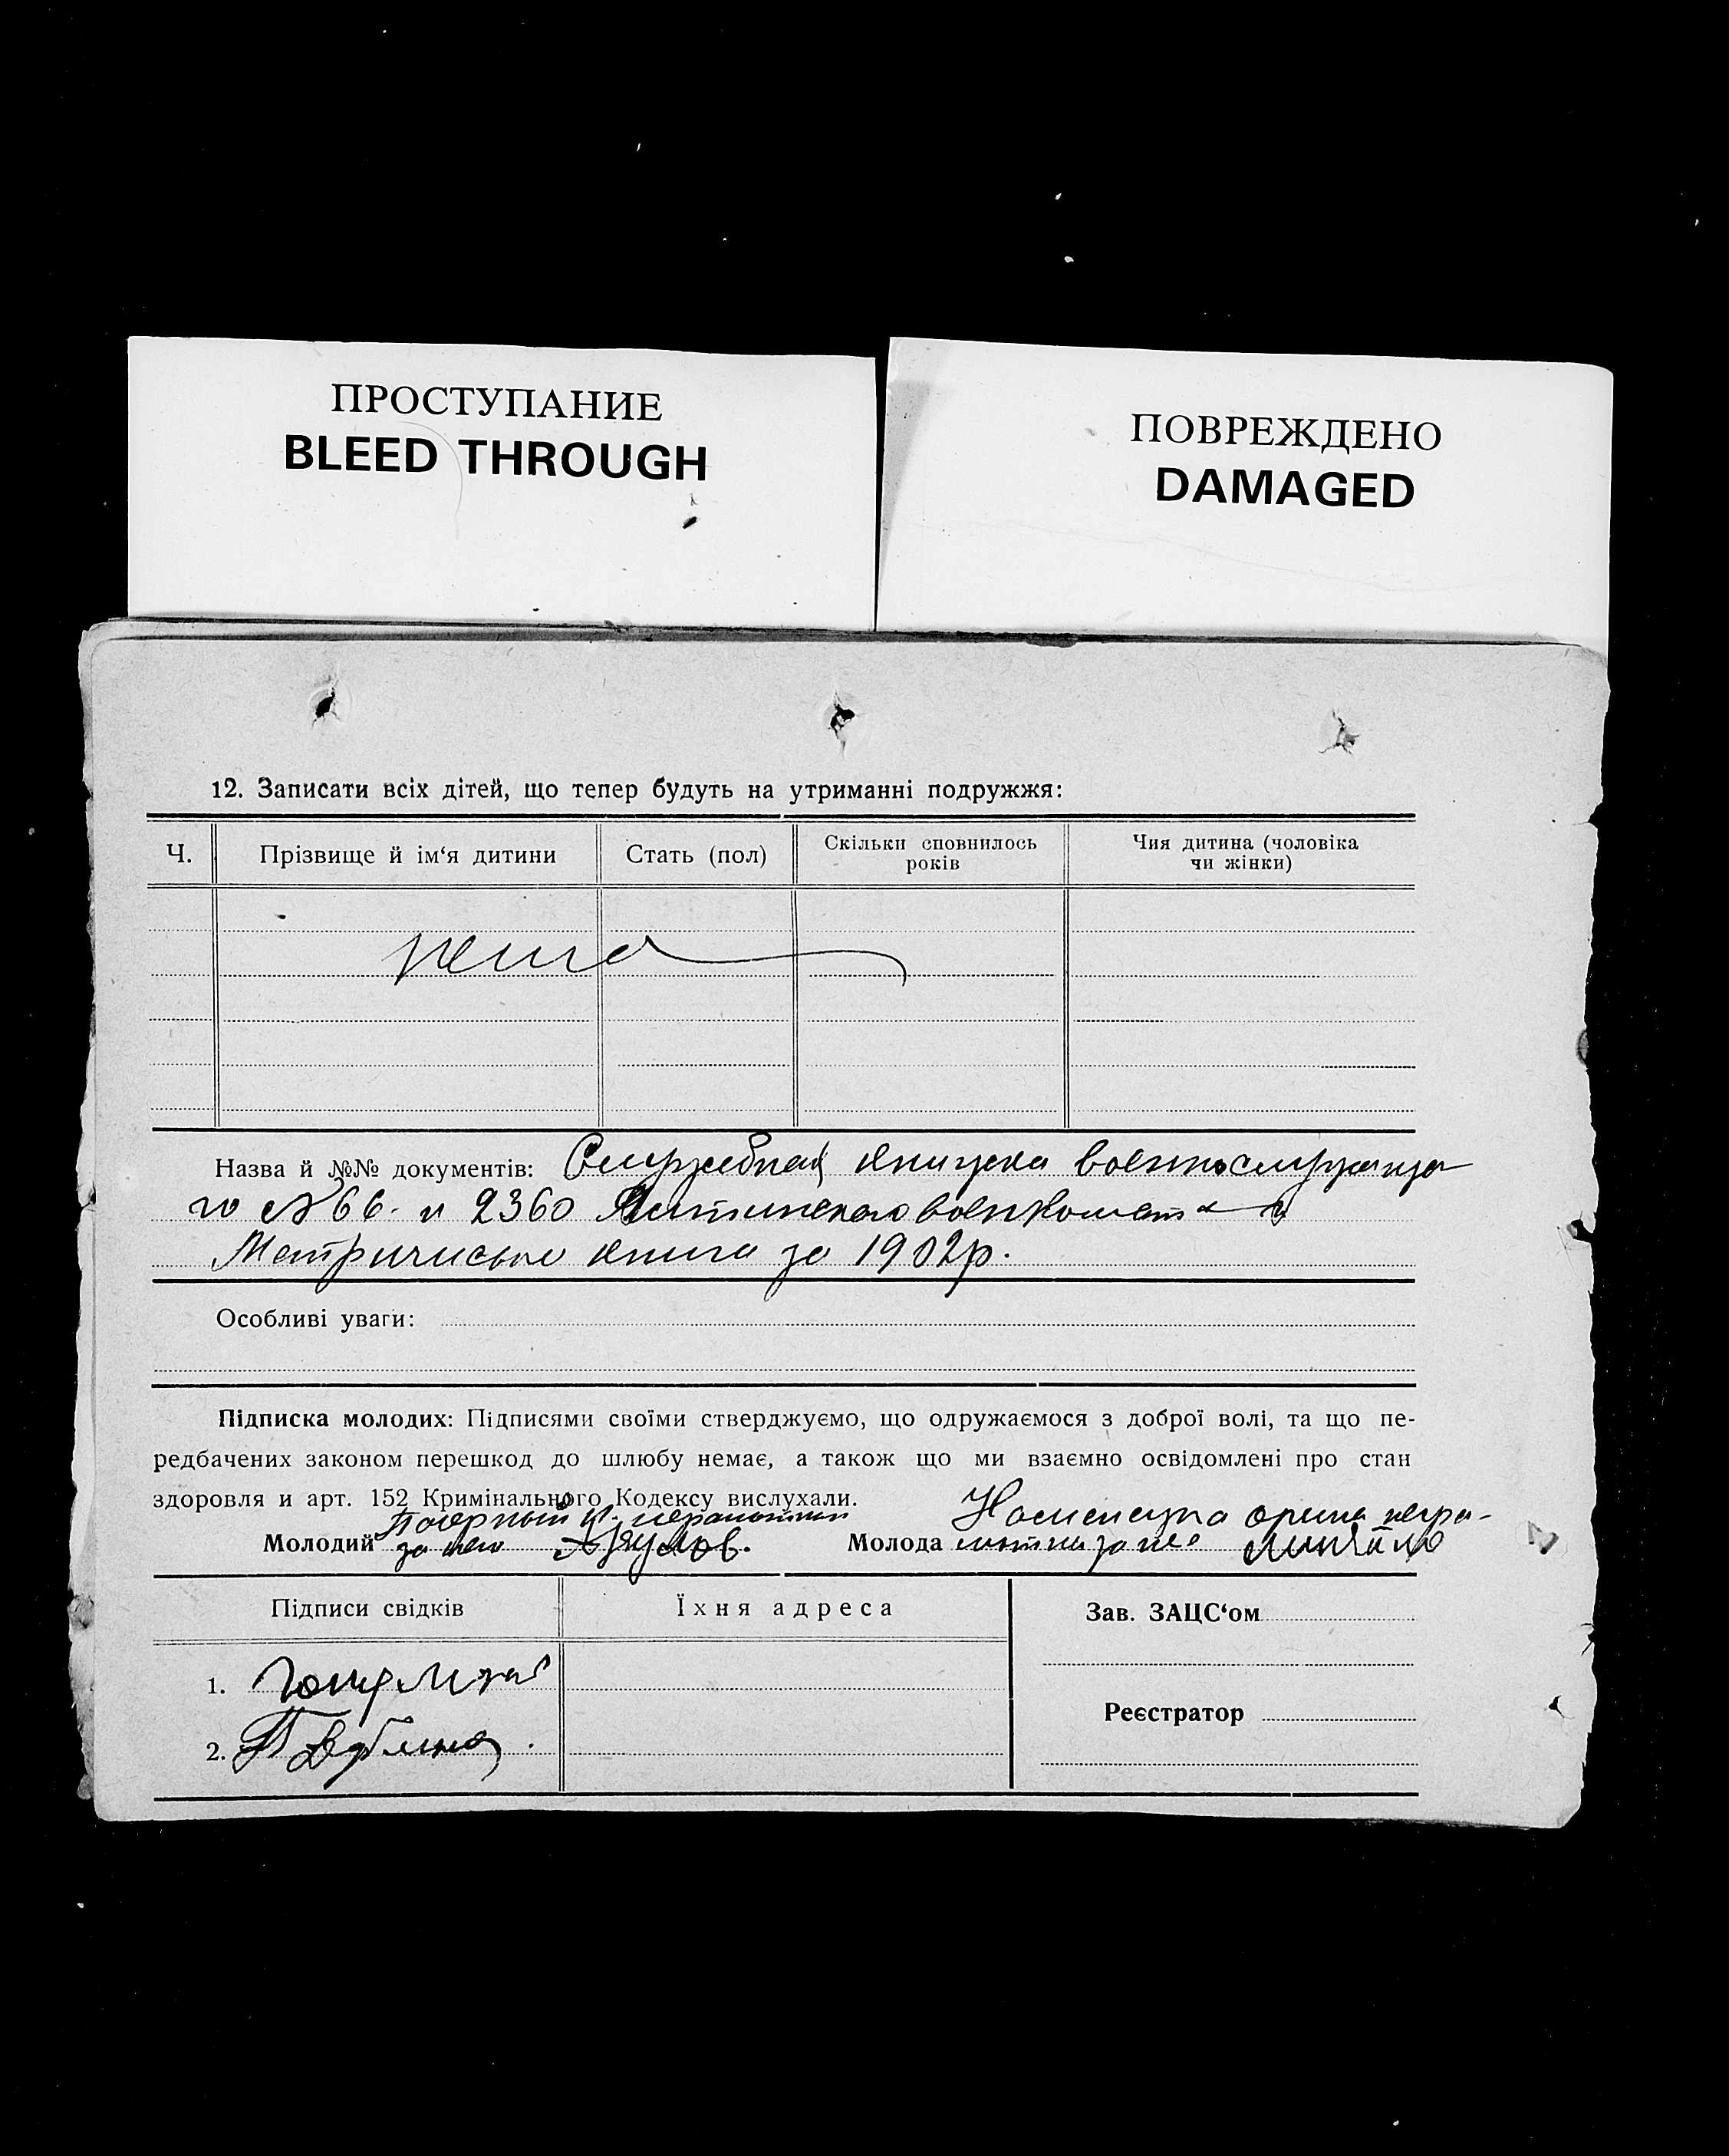 ПРОСТУПАНИЕ
BLEED THROUGH
ПОВРЕЖДЕНО
DAMAGED
12. Записати всіх дітей, що тепер будуть на утриманні подружжя:
Ч.
Прізвище й ім‘я дитини
Стать (пол)
Скільки сповнилось
років
Чия дитина (чоловіка
чи жінки)
нема
Назва й №№ документів: Служебная книжка военнослужаще
го № 366. и 2360 военкомата
Матрична книга за 1902р.
Особливі уваги:
Підписка молодих: Підписями своїми стверджуємо, що одружаємося з доброї волі, та що пе-
редбачених законом перешкод до шлюбу немає, а також що ми взаємно освідомлені про стан
здоровля и арт. 152 Кримінального Кодексу вислухали.
Молодий за него
Молода Орина негра-
мотна за не
Підписи свідків
Їхня адреса
Зав. ЗАЦС‘ом
1.
2.
Реєстратор